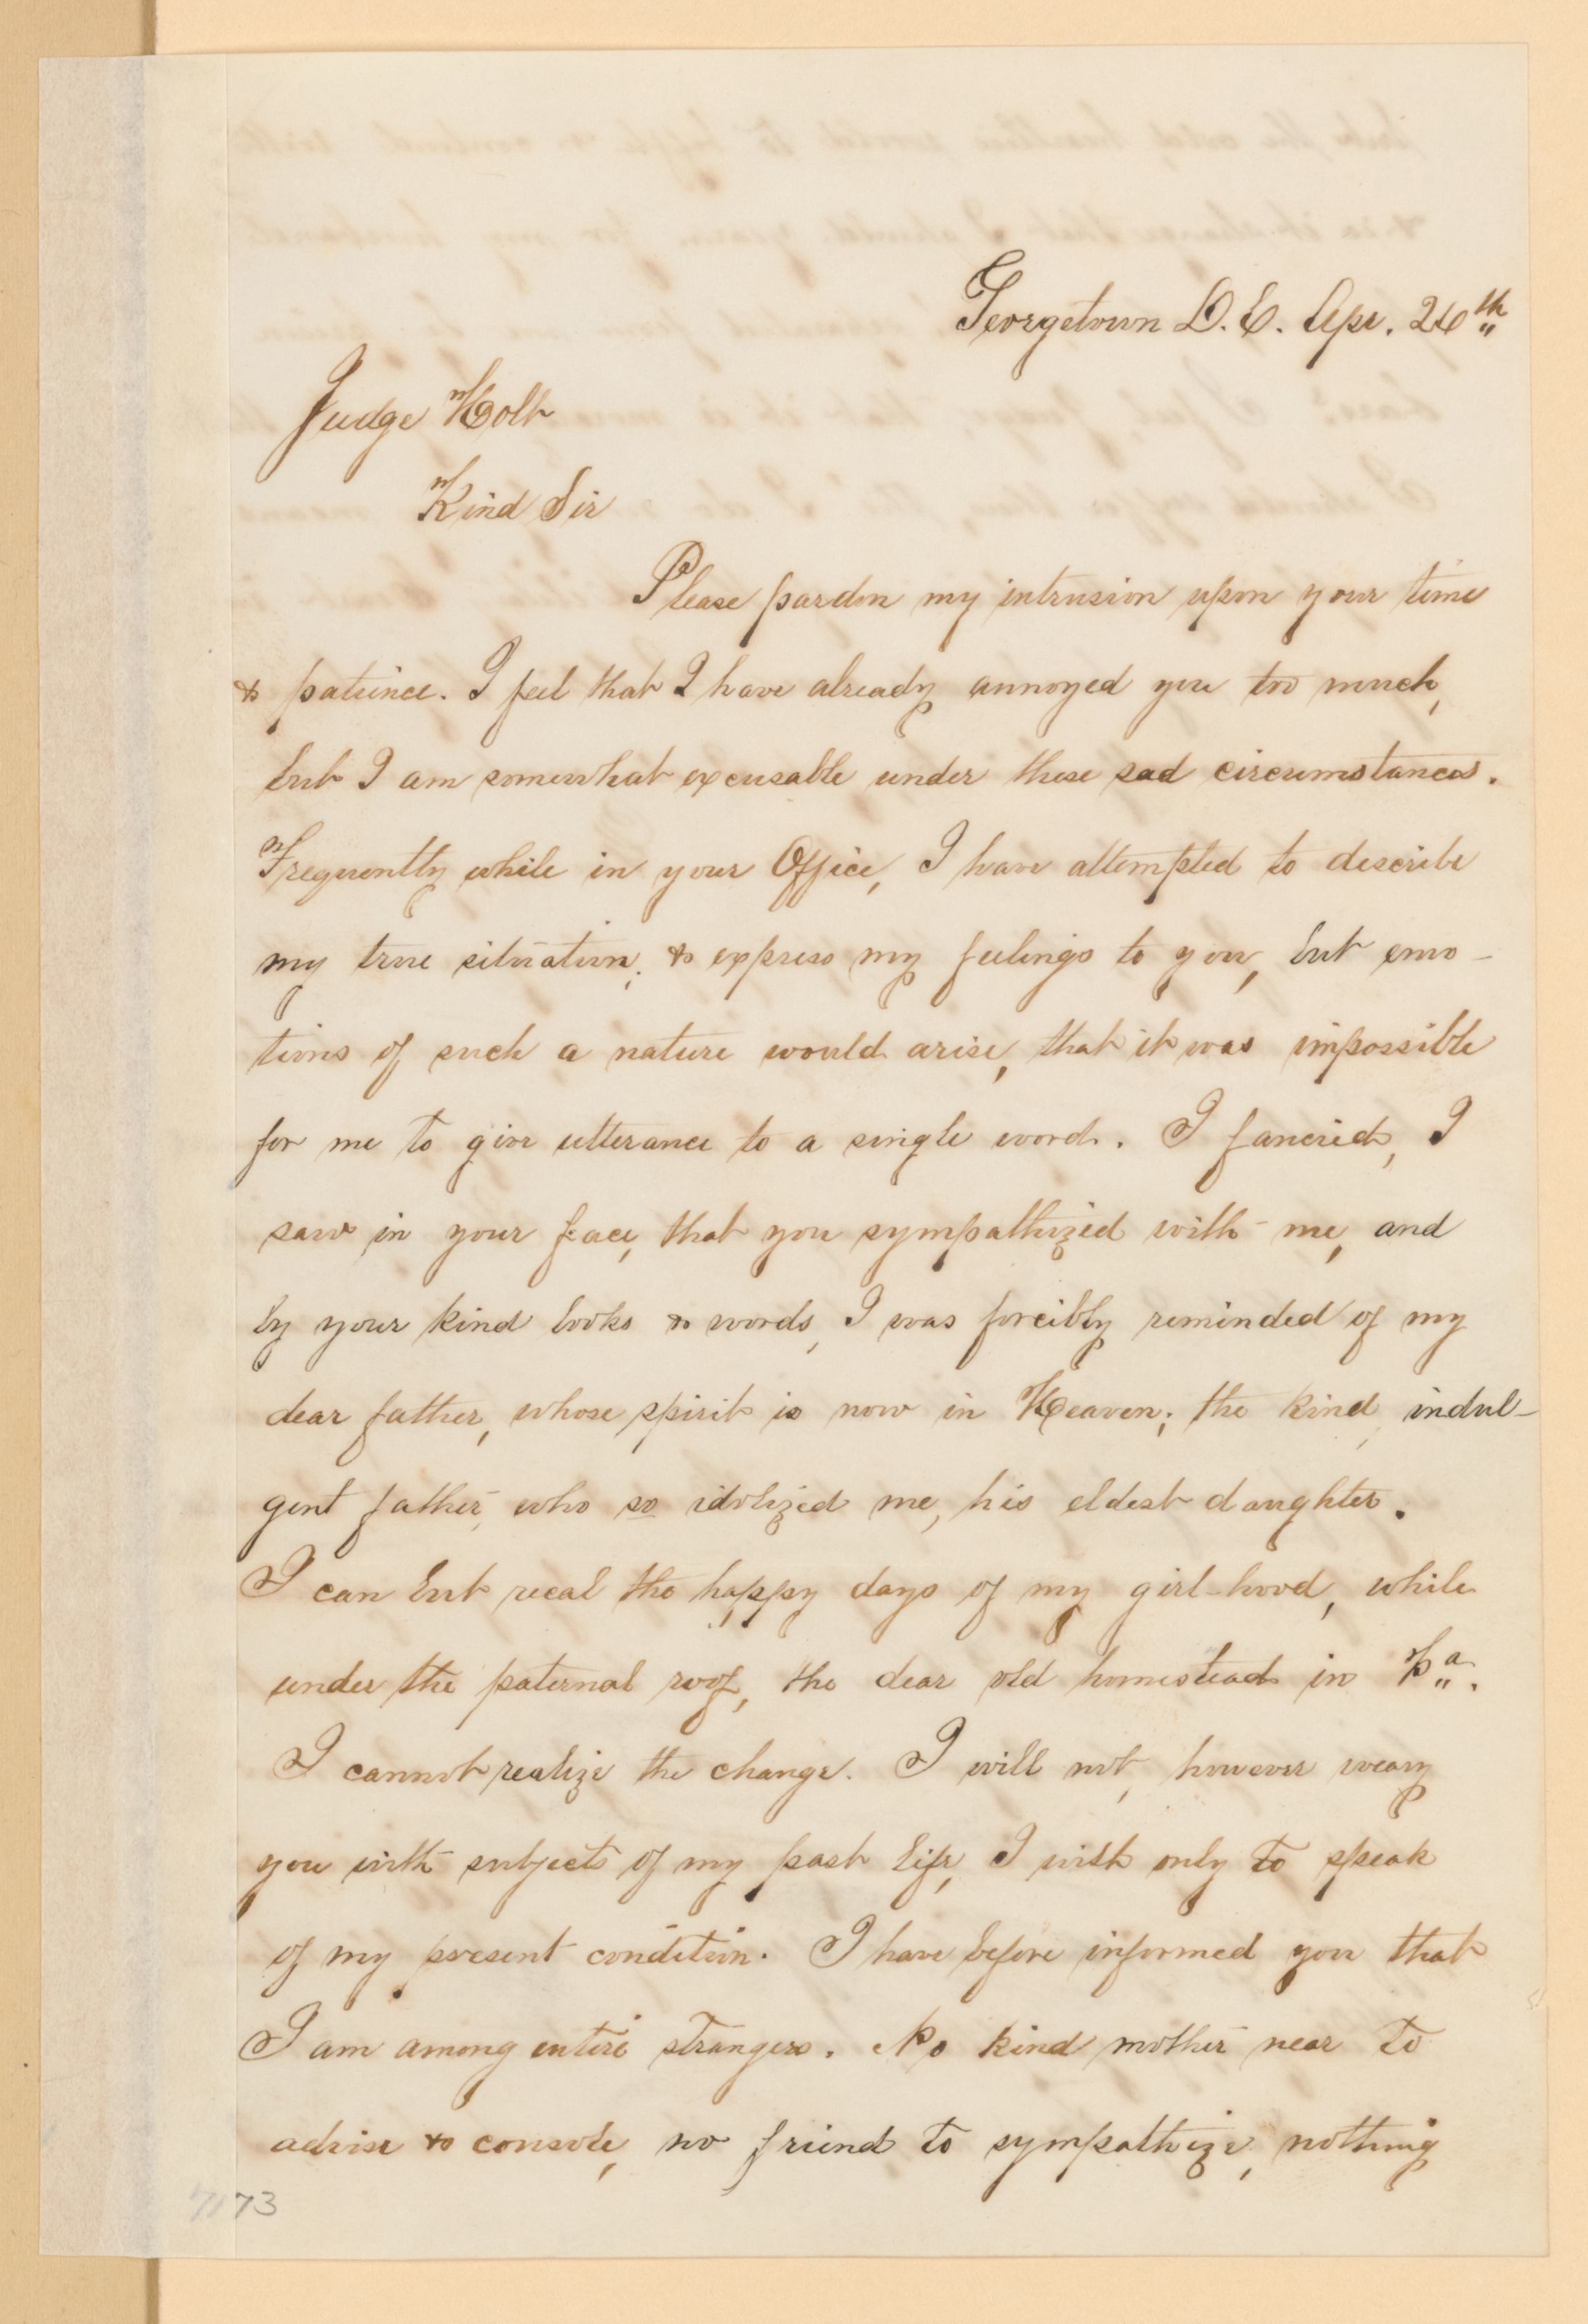 Georgetown D.C. Apr. 26th
Judge Holt
Kind Sir
Please pardon my intrusion upon your time
& patience. I feel that I have already annoyed you too much,
but I am somewhat excusable under these sad circumstances.
Frequently while in your Office, I have attempted to describe
my true situation, & express my feelings to you, but emo-
tions of such a nature would arise, that it was impossible
for me to give utterance to a single word. I fancied, I
saw in your face, that you sympathized with me, and
by your kind looks & words, I was forcibly reminded of my
dear father, whose spirit is now in Heaven; the kind, indul-
gent father, who so idolized me, his eldest daughter.
I can but recal the happy days of my girl-hood, while
under the paternal roof, the dear old homestead in Pa.
I cannot realize the change. I will not, however weary
you with subjects of my past life, I wish only to speak
of my present condition. I have before informed you that
I am among entire strangers. No kind mother near to
advise & console, no friend to sympathize, nothing
7173